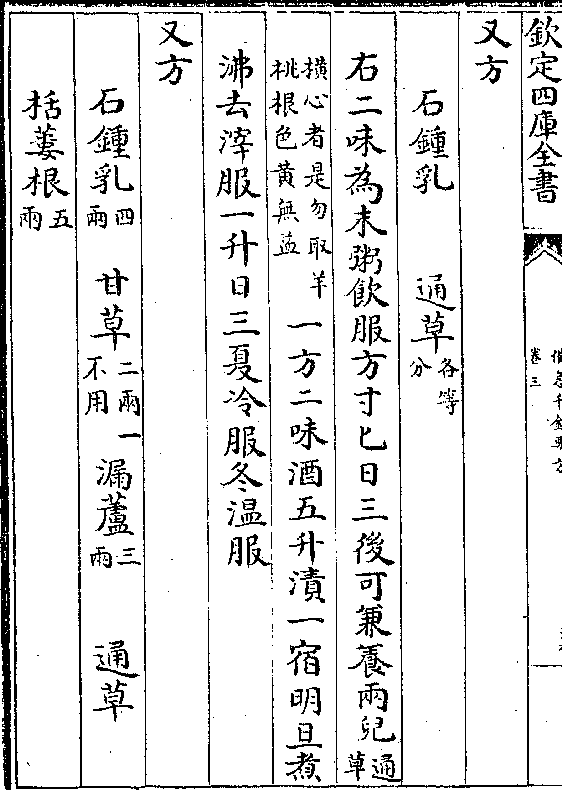 欽定四庫全書
備急千金要方
卷三
又方
石鍾乳 通草各等分
右二味為末粥飲服方寸匕日三後可兼養兩兒通草
橫心者是勿取羊桃根色黃無益 一方二味酒五升漬一宿明旦煮
沸去滓服一升日三夏冷服冬温服
又方
石鍾乳四兩 甘草二兩一不用 漏蘆三兩 通草
栝蔞根五兩